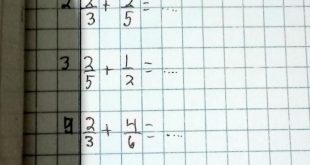 2 2/3 + 2/5 = ....
3 2/5 + 1/2 = ....
2/3 + 4/6 = ....